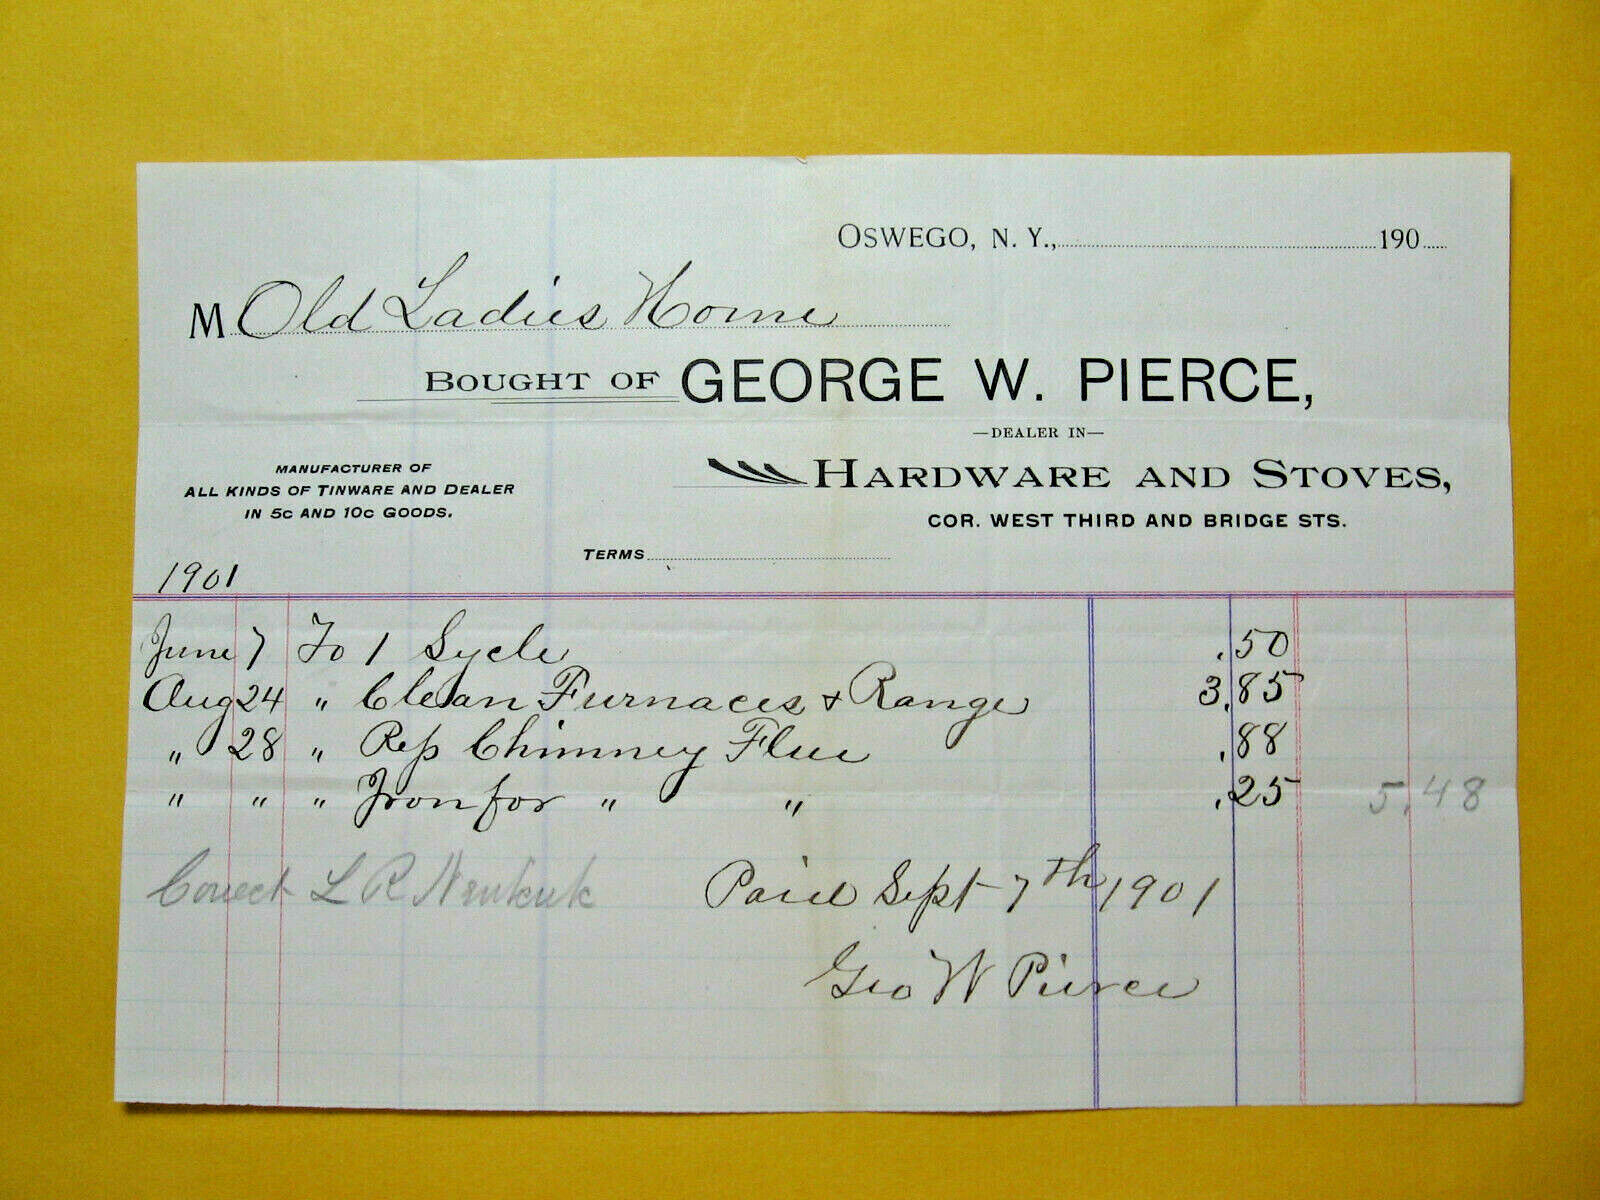 OSWEGO, N. Y., 190
M Old Ladies Home
BOUGHT OF GEORGE W. PIERCE,
—DEALER IN—
HARDWARE AND STOVES,
COR. WEST THIRD AND BRIDGE STS.
MANUFACTURER OF
ALL KINDS OF TINWARE AND DEALER
IN 5c AND 10c GOODS.
TERMS
1901
June 7 To 1 Sycle .50
Aug 24 " Clean Furnaces & Range 3.85
" 28 " Rep Chimney Flue .88
" " " Iron for " " .25 5.48
Correct L R
Paid Sept 7th 1901
Geo W Pierce